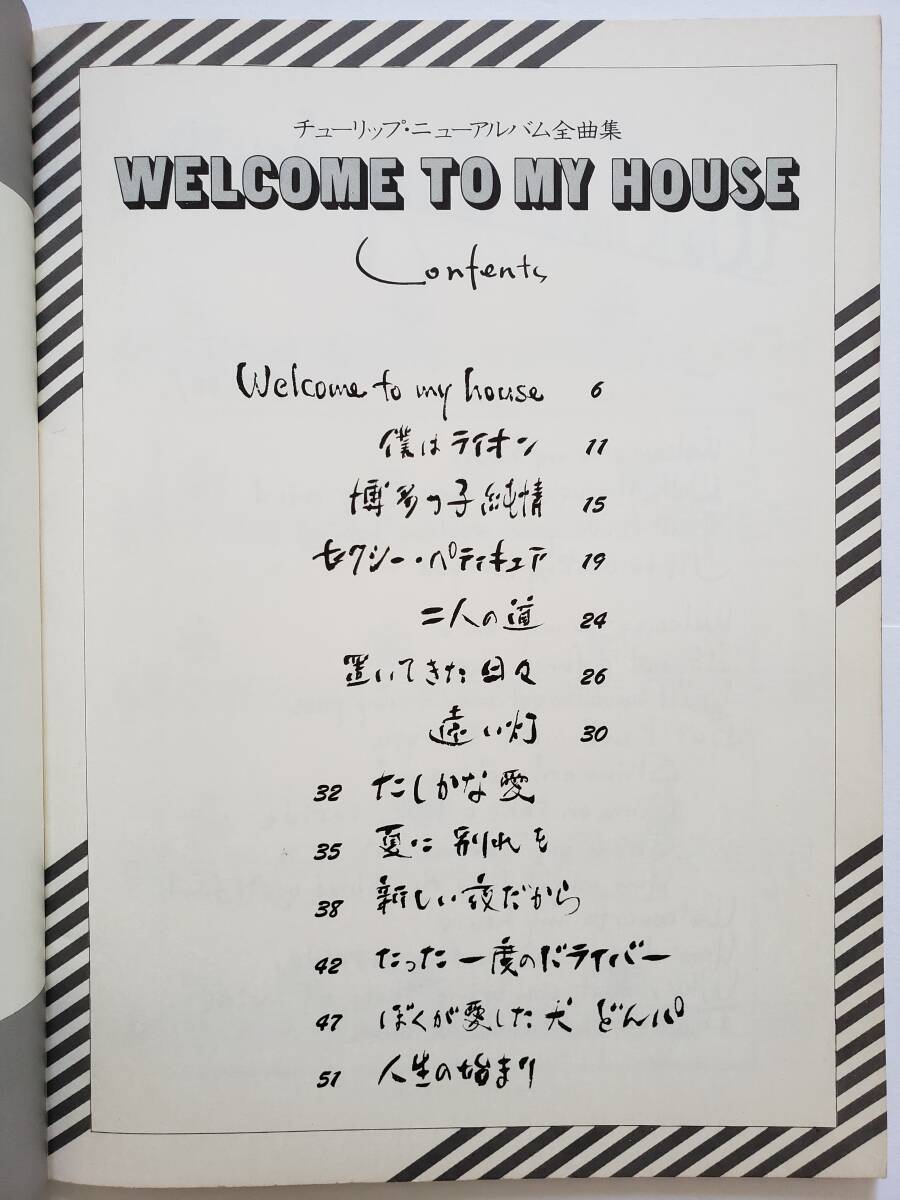 チューリップ・ニューアルバム全曲集
WELCOME TO MY HOUSE
Contents
Welcome to my house 6
僕はライオン 11
博多っ子純情 15
セクシー・ペティキュア 19
二人の道 24
置いてきた日々 26
遠い灯 30
32 たしかな愛
35 夏に別れを
38 新しい夜だから
42 たった一度のドライバー
47 ぼくが愛した犬 どんパ
51 人生の始まり